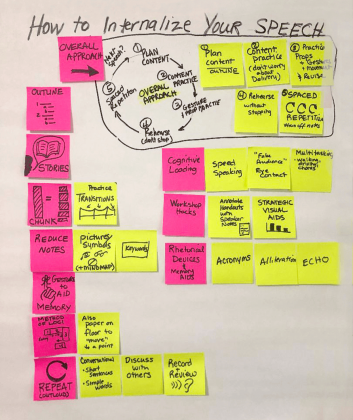 How to Internalize Your Speech
OVERALL
APPROACH
Next
Speech?
① PLAN
CONTENT
② CONTENT
PRACTICE
OVERALL
APPROACH
③ GESTURE
& PROP PRACTICE
④
Rehearse
(don't stop)
⑤
Spaced
Repetition
① Plan
content
outline
② Content
practice
(don't worry
about
Delivery)
③ Practice
Props
+ Gestures
+
& Revise
④ Rehearse
without
stopping
⑤ SPACED
REPETITION
Wean off notes
OUTLINE
STORIES
CHUNK
Practice
TRANSITIONS
REDUCE
NOTES
pictures
Symbols
(+ mindmap)
Keywords
GESTURES
TO AID
MEMORY
METHOD
OF LOCI
Also
paper on
floor to
"move"
to a point
REPEAT
(OUT LOUD)
Conversations
• Short
sentences
• Simple
words
Discuss
with
others
Record
Review
Cognitive
Loading
Speed
Speaking
"Fake
Audience"
Eye
Contact
Multitasking
- walking,
driving,
chores
Workshop
Hacks
Annotate
Handouts
with
Speaker
Notes
STRATEGIC
VISUAL
AIDS
Rhetorical
Devices
& Memory
AIDS
Acronyms
Alliteration
ECHO